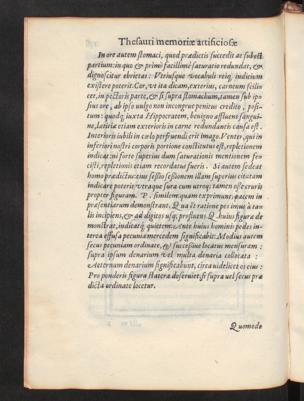 Thesauri memoriæ artificiosæ
In ore autem stomaci, quod prædictis succedit at subest
partium: in quo & primo facillimè saturatio redundat, &
dignoscitur ebrietas: Vtriusque vocabuli reiq; indicium
existere poterit. Cor, vt ita dicam, exterius, carneum scilicet
, in pectoris parte, & si supra stomachum, tamen sub ip
sius ore, ab ipso vulgo non incongruè penitus credito, posi-
tum: quodq; iuxta Hippocratem, benigno affluens sangui-
ne, lætitiæ etiam exterioris in carne redundantis causa est.
Interioris iubili in cælo perfruendi erit imago. Venter, qui in
inferiori nostri corporis portione constitutus est, repletionem
indicat: ni fortè superius dum saturationis mentionem fe-
cisti, repletionis etiam recordatus fueris. Si autem sedeat
homo prædictus: eius sessio sessionem illam superius citatam
indicare poterit: vtraque sura cum vtroq; tamen osse cruris
propter figuram. P. similem: quam exprimunt, pacem in
præsentiarum demonstrant. Q
lis incipiens, & ad digitos usq; profluens Q. huius figura de
monstrat, indicatq; quietem: Ante huius hominis pedes in-
terra effusa pecunia mercedem significabit: Modius autem
secus pecuniam ordinatè, & successiuè locatus mensuram:
supra ipsum denarium vel multa denaria collocata:
Aeternum denarium significabunt, circa videlicet os eius:
Pro ponderis figura statera deseruiet si supra vel secus præ
dicta ordinatè locetur.
Quomodo